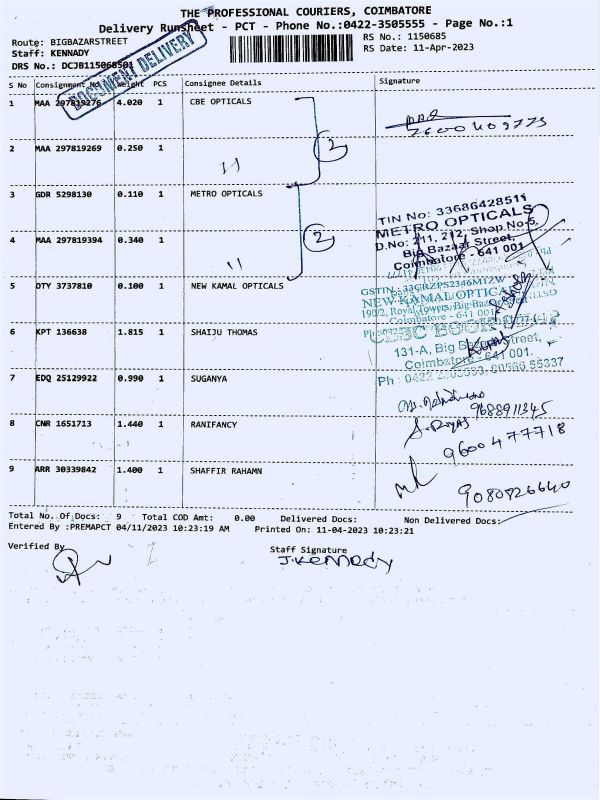 THE PROFESSIONAL COURIERS, COIMBATORE
Delivery Runsheet - PCT - Phone No.:0422-3505555 - Page No.:1
Route: BIGBAZARSTREET
RS No.: 1150685
Staff: KENNADY
RS Date: 11-Apr-2023
DRS No.: DCJB115068501
DOCUMENT DELIVERY
S No Consignment No Weight PCS Consignee Details Signature
1 MAA 297819276 4.020 1 CBE OPTICALS
7600409775
2 MAA 297819269 0.250 1 11
2
3 GDR 5298130 0.110 1 METRO OPTICALS
TIN No: 33686428511
METRO OPTICALS
D.No: 211, 212, Shop No-5,
Big Bazaar Street,
Coimbatore - 641 001
4 MAA 297819394 0.340 1 11
2
5 DTY 3737810 0.100 1 NEW KAMAL OPTICALS
GSTIN : 33CRZPS2346M1ZW
NEW KAMAL OPTICALS
190/2, Royal Towers, Big Bazaar Street
Coimbatore - 641 001
6 KPT 136638 1.815 1 SHAIJU THOMAS
131-A, Big Bazaar Street,
Coimbatore - 641 001.
Ph : 0422
7 EDQ 25129922 0.990 1 SUGANYA
9688911345
8 CNR 1651713 1.440 1 RANIFANCY
9600477718
9 ARR 30339842 1.400 1 SHAFFIR RAHAMN
9080826640
Total No. Of Docs: 9 Total COD Amt: 0.00 Delivered Docs: Non Delivered Docs:
Entered By :PREMAPCT 04/11/2023 10:23:19 AM Printed On: 11-04-2023 10:23:21
Verified By
Staff Signature
J.KENNADY